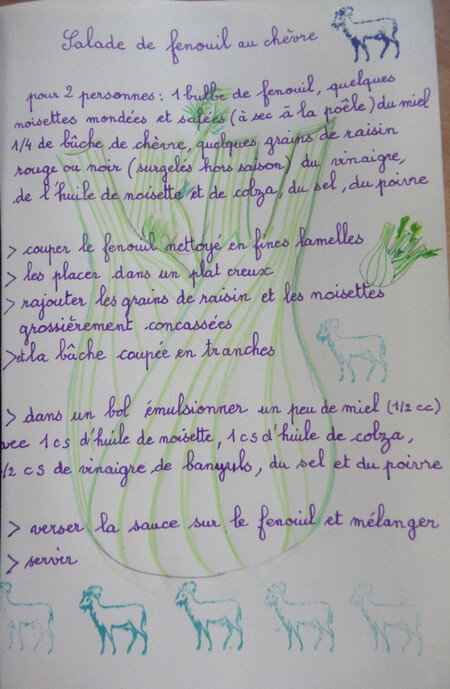 Salade de fenouil au chèvre
pour 2 personnes : 1 bulbe de fenouil, quelques
noisettes mondées et salées (à sec à la poêle) du miel
1/4 de bûche de chèvre, quelques grains de raisin
rouge ou noir (surgelés hors saison) du vinaigre,
de l'huile de noisette et de colza, du sel, du poivre
> couper le fenouil nettoyé en fines lamelles
> les placer dans un plat creux
> rajouter les grains de raisin et les noisettes
grossièrement concassées
> et la bûche coupée en tranches
> dans un bol émulsionner un peu de miel (1/2 cc)
avec 1 cs d'huile de noisette, 1 cs d'huile de colza,
1/2 cs de vinaigre de banyuls, du sel et du poivre
> verser la sauce sur le fenouil et mélanger
> servir